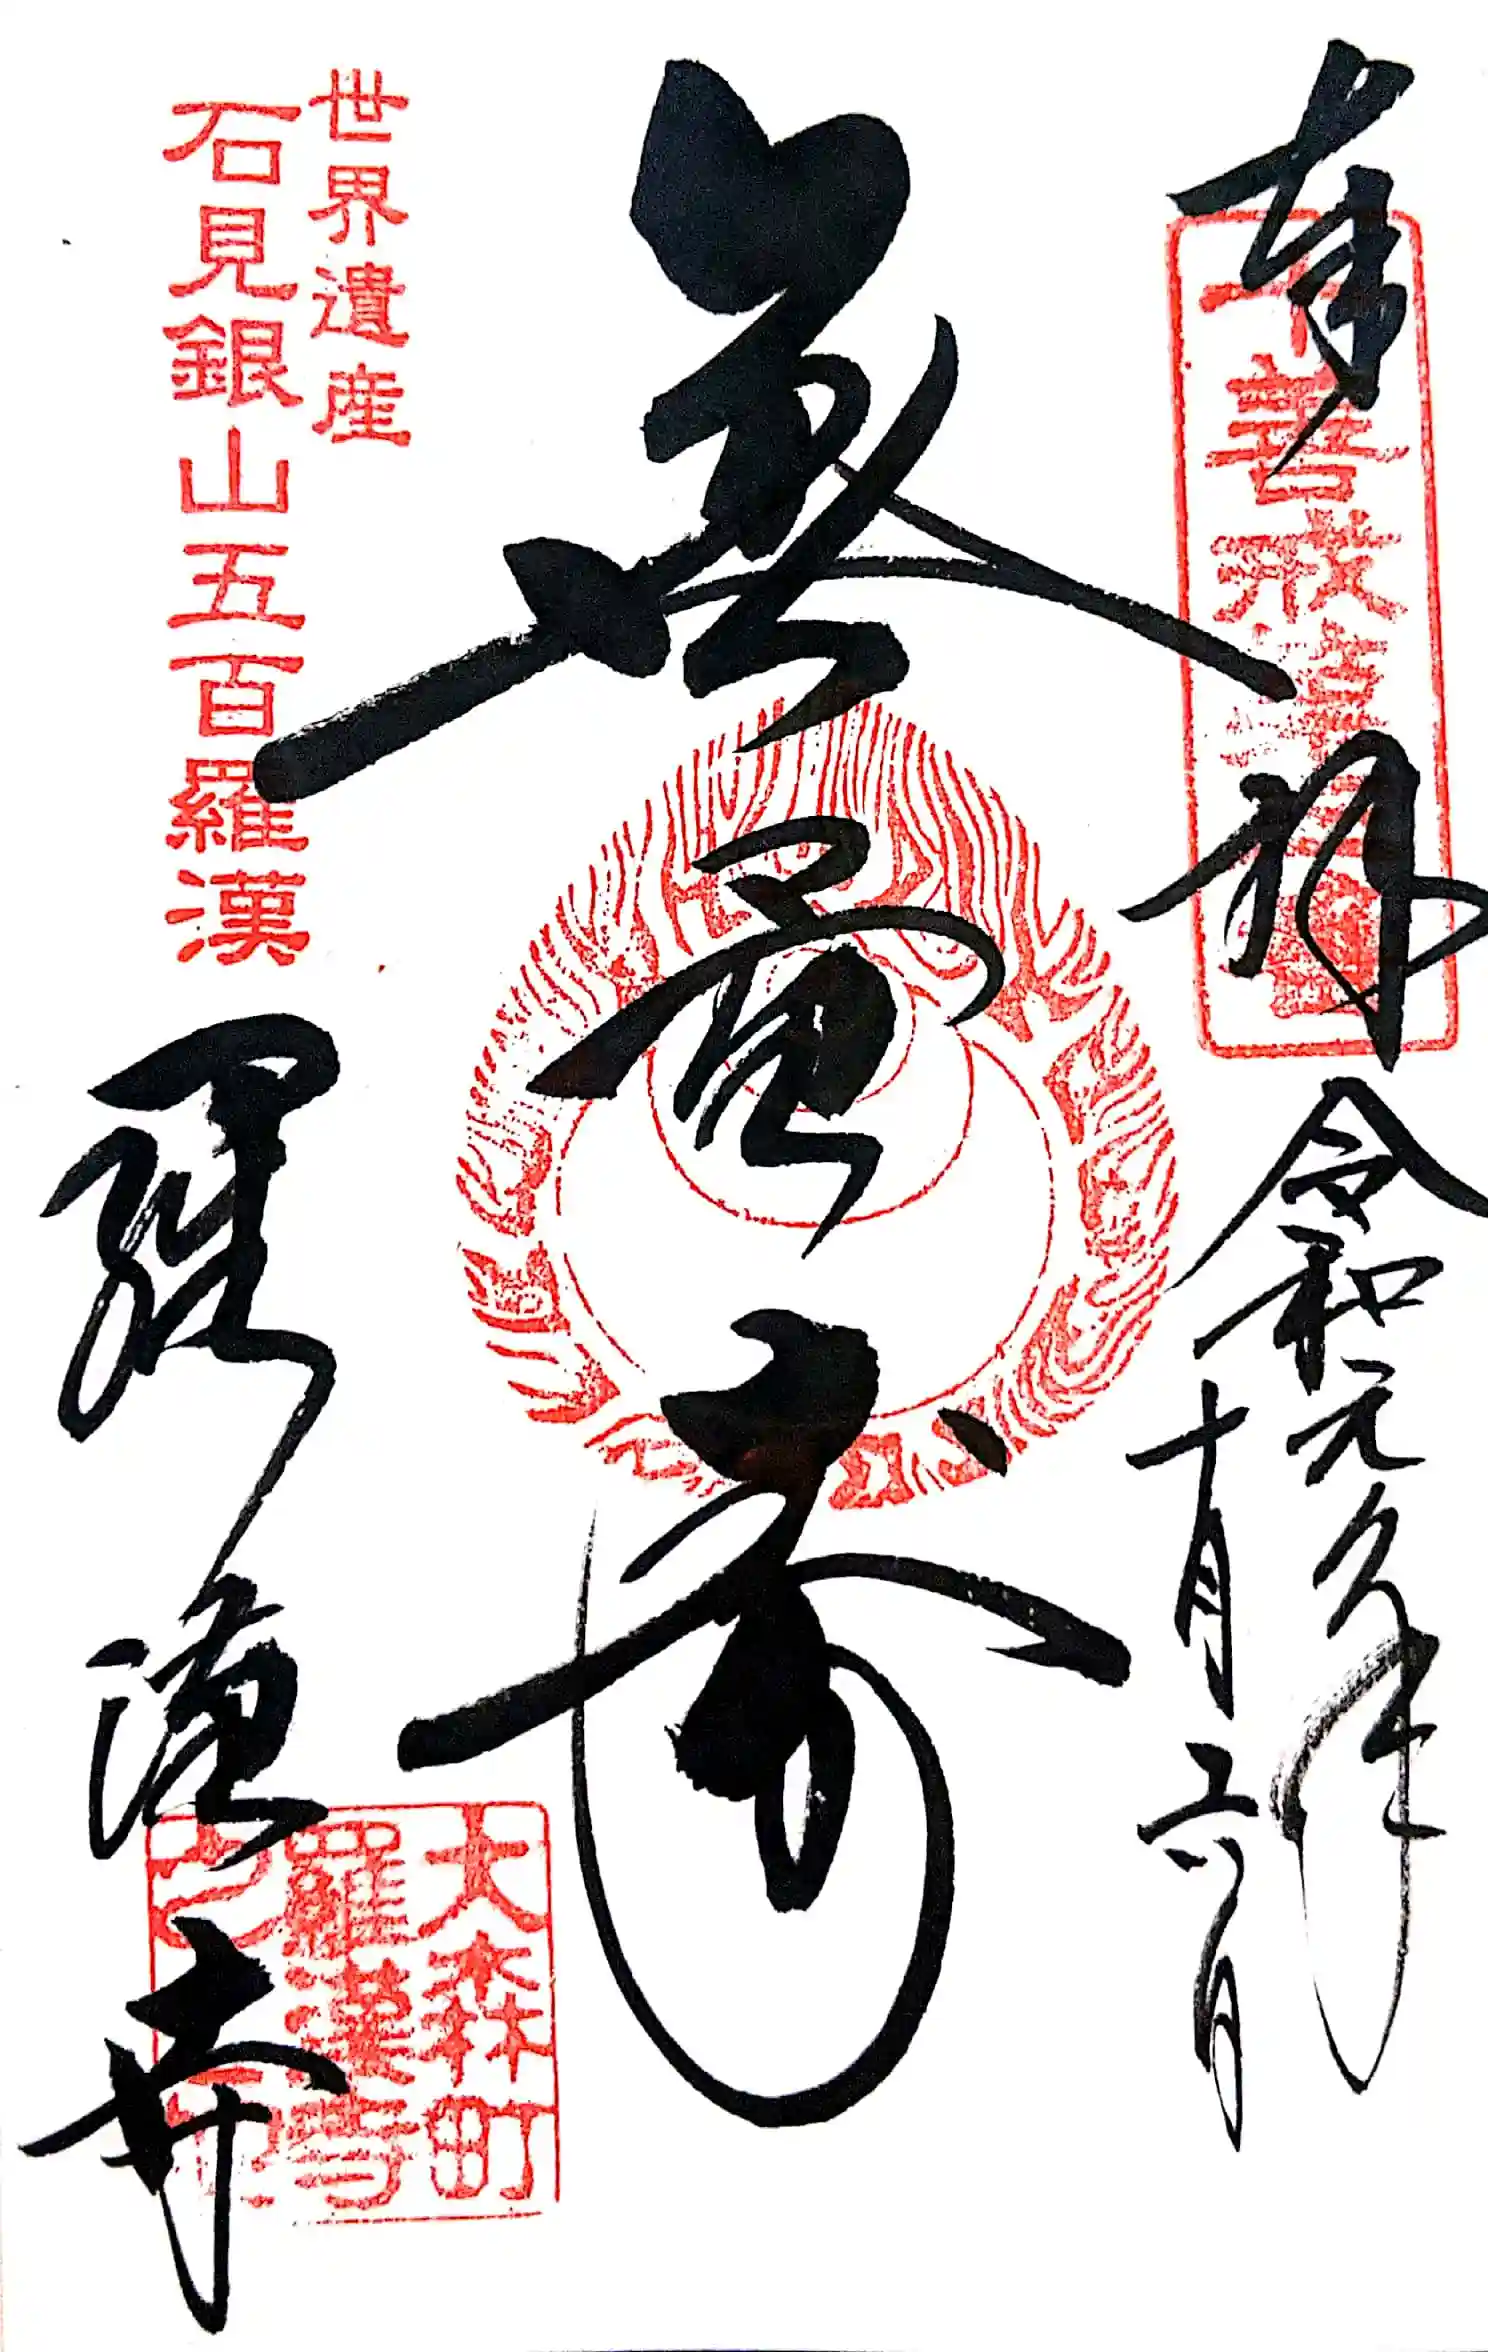 奉拝
令和元年
十月二六日
十善戒
無量寿
世界遺産
石見銀山五百羅漢
羅漢寺
大森町
羅漢寺